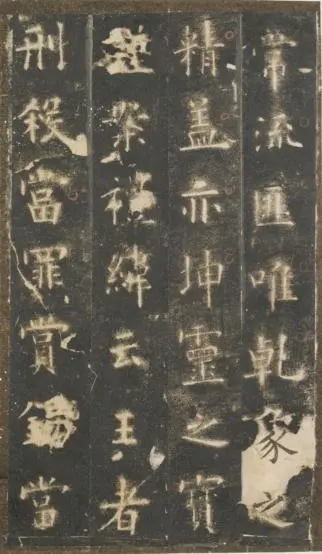 常流匪唯乾象之
精盖亦坤靈之寶
謹案禮緯云王者
刑殺當罪賞錫當